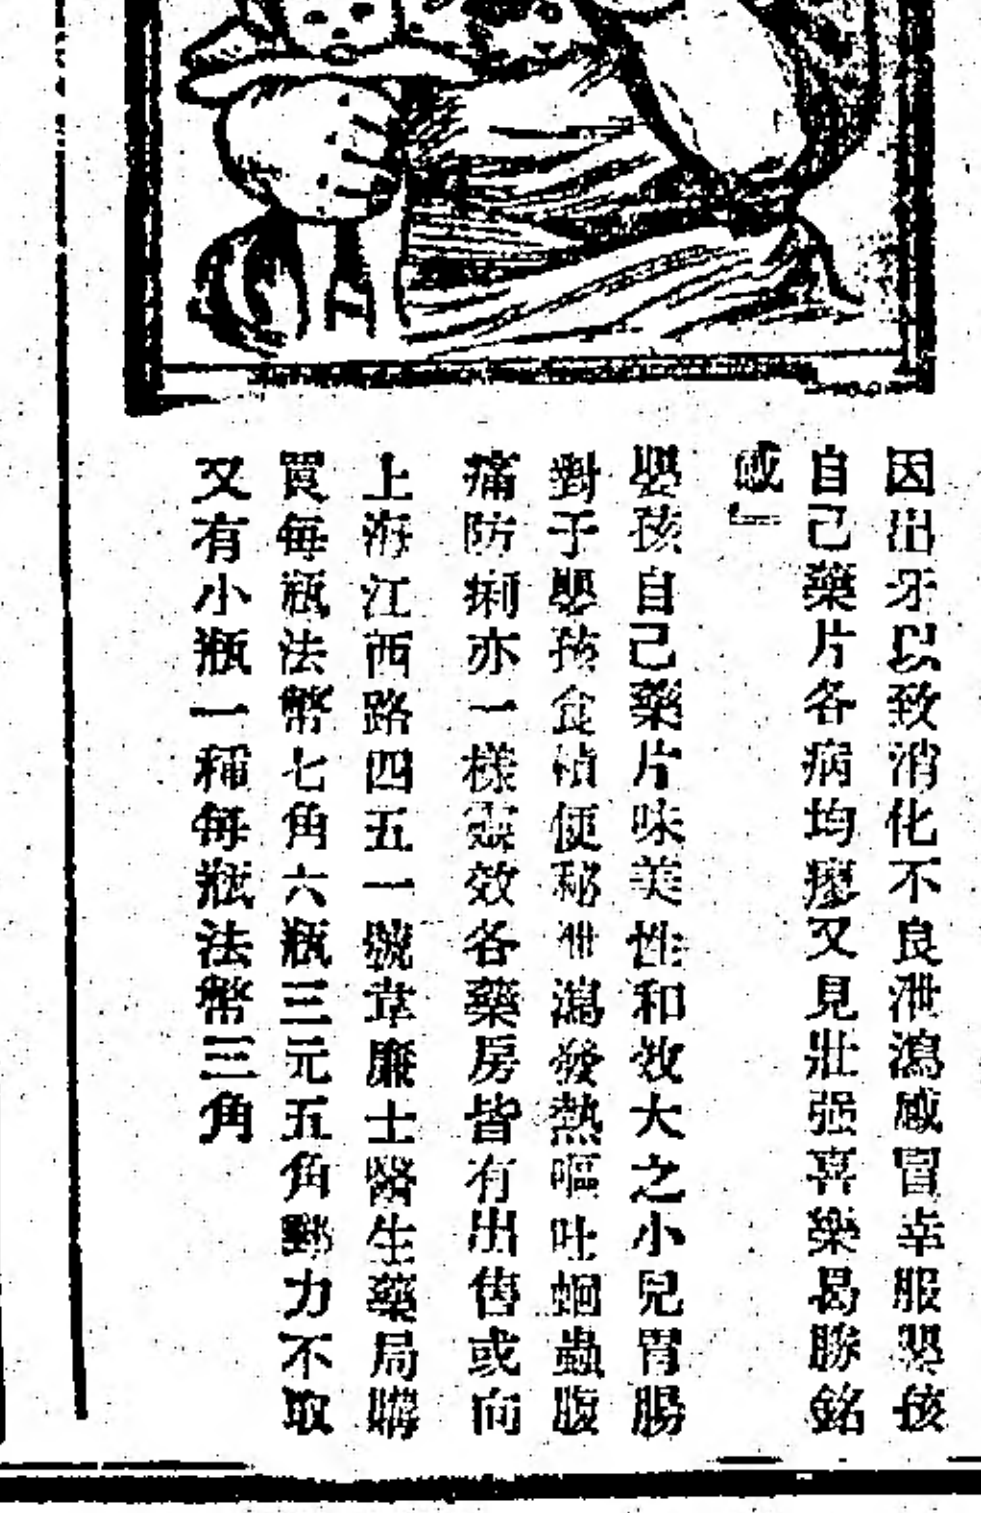 因出牙以致消化不良泄瀉感冒幸服嬰孩
自己藥片各病均瘳又見壯强喜樂曷勝銘
感」
嬰孩自己藥片味美性和效大之小兒胃腸
對于嬰孩食積便秘泄瀉發熱嘔吐蛔蟲腹
痛防痢亦一樣靈效各藥房皆有出售或向
上海江西路四五一號韋廉士醫生藥局購
買每瓶法幣七角六瓶三元五角郵力不取
又有小瓶一種每瓶法幣三角